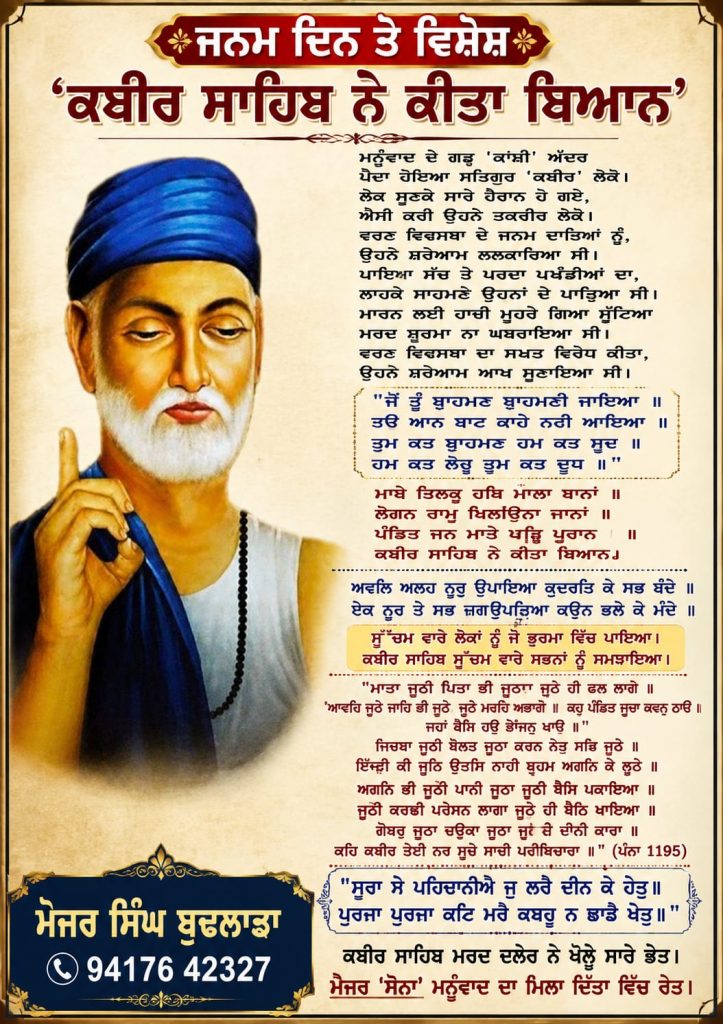 ਜਨਮ ਦਿਨ ਤੇ ਵਿਸ਼ੇਸ਼
‘ਕਬੀਰ ਸਾਹਿਬ ਨੇ ਕੀਤਾ ਬਿਆਨ’
ਮਨੂੰਵਾਦ ਦੇ ਗੜ੍ਹ ‘ਕਾਂਸ਼ੀ’ ਅੰਦਰ
ਪੈਦਾ ਹੋਇਆ ਸਤਿਗੁਰ ‘ਕਬੀਰ’ ਲੋਕੋ।
ਲੋਕ ਸੂਣਕੇ ਸਾਰੇ ਹੈਰਾਨ ਹੋ ਗਏ,
ਐਸੀ ਕਰੀ ਉਹਨੇ ਤਕਰੀਰ ਲੋਕੋ।
ਵਰਣ ਵਿਵਸਥਾ ਦੇ ਜਨਮ ਦਾਤਿਆਂ ਨੂੰ,
ਉਹਨੇ ਸ਼ਰੇਆਮ ਲਲਕਾਰਿਆ ਸੀ।
ਪਾਇਆ ਸੱਚ ਤੇ ਪਰਦਾ ਪਖੰਡੀਆਂ ਦਾ,
ਲਾਹਕੇ ਸਾਹਮਣੇ ਉਹਨਾਂ ਦੇ ਪਾੜ੍ਹਿਆ ਸੀ।
ਮਾਰਨ ਲਈ ਹਾਥੀ ਮੂਹਰੇ ਗਿਆ ਸੂੱਟਿਆ
ਮਰਦ ਸ਼ੂਰਮਾ ਨਾ ਘਬਰਾਇਆ ਸੀ।
ਵਰਣ ਵਿਵਸਥਾ ਦਾ ਸਖਤ ਵਿਰੋਧ ਕੀਤਾ,
ਉਹਨੇ ਸ਼ਰੇਆਮ ਆਖ ਸੂਣਾਇਆ ਸੀ।
"ਜੋਂ ਤੂੰ ਬ੍ਰਾਹਮਣ ਬ੍ਰਾਹਮਣੀ ਜਾਇਆ ॥
ਤਓ ਆਨ ਬਾਟ ਕਾਹੇ ਨਹੀ ਆਇਆ ॥
ਤੁਮ ਕਤ ਬ੍ਰਾਹਮਣ ਹਮ ਕਤ ਸੂਦ ॥
ਹਮ ਕਤ ਲੋਹੂ ਤੂਮ ਕਤ ਦੂਧ ॥"
ਮਾਥੇ ਤਿਲਕੂ ਹਥਿ ਮਾਲਾ ਬਾਨਾਂ ॥
ਲੋਗਨ ਰਾਮੁ ਖਿਲਉਨਾ ਜਾਨਾਂ ॥
ਪੰਡਿਤ ਜਨ ਮਾਤੇ ਪੜ੍ਹਿ ਪੂਰਾਨ ॥
ਕਬੀਰ ਸਾਹਿਬ ਨੇ ਕੀਤਾ ਬਿਆਨ।
ਅਵਲਿ ਅਲਹ ਨੂਰੁ ਉਪਾਇਆ ਕੁਦਰਤਿ ਕੇ ਸਭ ਬੰਦੇ ॥
ਏਕ ਨੂਰ ਤੇ ਸਭ ਜ਼ਗਉਪੜਿਆ ਕਉਨ ਭਲੇ ਕੇ ਮੰਦੇ ॥
ਸੂੱਚਮ ਵਾਰੇ ਲੋਕਾਂ ਨੂੰ ਜੋ ਭੁਰਮਾ ਵਿੱਚ ਪਾਇਆ।
ਕਬੀਰ ਸਾਹਿਬ ਸੂੱਚਮ ਵਾਰੇ ਸਭਨਾਂ ਨੂੰ ਸਮਝਾਇਆ।
"ਮਾਤਾ ਜੂਠੀ ਪਿਤਾ ਭੀ ਜੂਠਾ ਜੂਠੇ ਹੀ ਫਲ ਲਾਗੇ ॥
'ਆਵਹਿ ਜੂਠੇ ਜਾਹਿ ਭੀ ਜੂਠੇ ਜੂਠੇ ਮਰਹਿ ਅਭਾਗੇ ॥ ਕਹੁ ਪੰਡਿਤ ਸੂਚਾ ਕਵਨੁ ਠਾਓ॥
ਜਹਾਂ ਬੈਸਿ ਹਉ ਭੋਜਨੁ ਖਾਉ ॥"
ਜਿਹਬਾ ਜੂਠੀ ਬੋਲਤ ਜੂਠਾ ਕਰਨ ਨੇਤੁ ਸਭਿ ਜੂਠੇ ॥
ਇੰਦ੍ਰੀ ਕੀ ਜੂਠਿ ਉਤਸਿ ਨਾਹੀ ਬ੍ਰਹਮ ਅਗਨਿ ਕੇ ਲੂਠੇ ॥
ਅਗਨਿ ਭੀ ਜੂਠੀ ਪਾਨੀ ਜੂਠਾ ਜੂਠੀ ਬੈਸਿ ਪਕਾਇਆ ॥
ਜੂਠੀ ਕਰਛੀ ਪਰੇਸਨ ਲਾਗਾ ਜੂਠੇ ਹੀ ਬੈਠਿ ਖਾਇਆ ॥
ਗੋਬਰੁ ਜੂਠਾ ਚਉਕਾ ਜੂਠਾ ਦੀਨੀ ਕਾਰਾ ॥
ਕਹਿ ਕਬੀਰ ਤੇਈ ਨਰ ਸੂਚੇ ਸਾਚੀ ਪਰੀਬਿਚਾਰਾ ॥" (ਪੰਨਾ 1195)
"ਸੂਰਾ ਸੇ ਪਹਿਚਾਨੀਐ ਜੁ ਲਰੈ ਦੀਨ ਕੇ ਹੇਤੁ॥
ਪੁਰਜਾ ਪੁਰਜਾ ਕਟਿ ਮਰੈ ਕਬਹੂ ਨ ਛਾਡੈ ਖੇਤੁ॥"
ਕਬੀਰ ਸਾਹਿਬ ਮਰਦ ਦਲੇਰ ਨੇ ਖੋਲ੍ਹੇ ਸਾਰੇ ਭੇਤ।
ਮੇਜਰ ‘ਸੋਨਾ’ ਮਨੂੰਵਾਦ ਦਾ ਮਿਲਾ ਦਿੱਤਾ ਵਿੱਚ ਰੇਤ।
ਮੇਜਰ ਸਿੰਘ ਬੁਢਲਾਡਾ
94176 42327